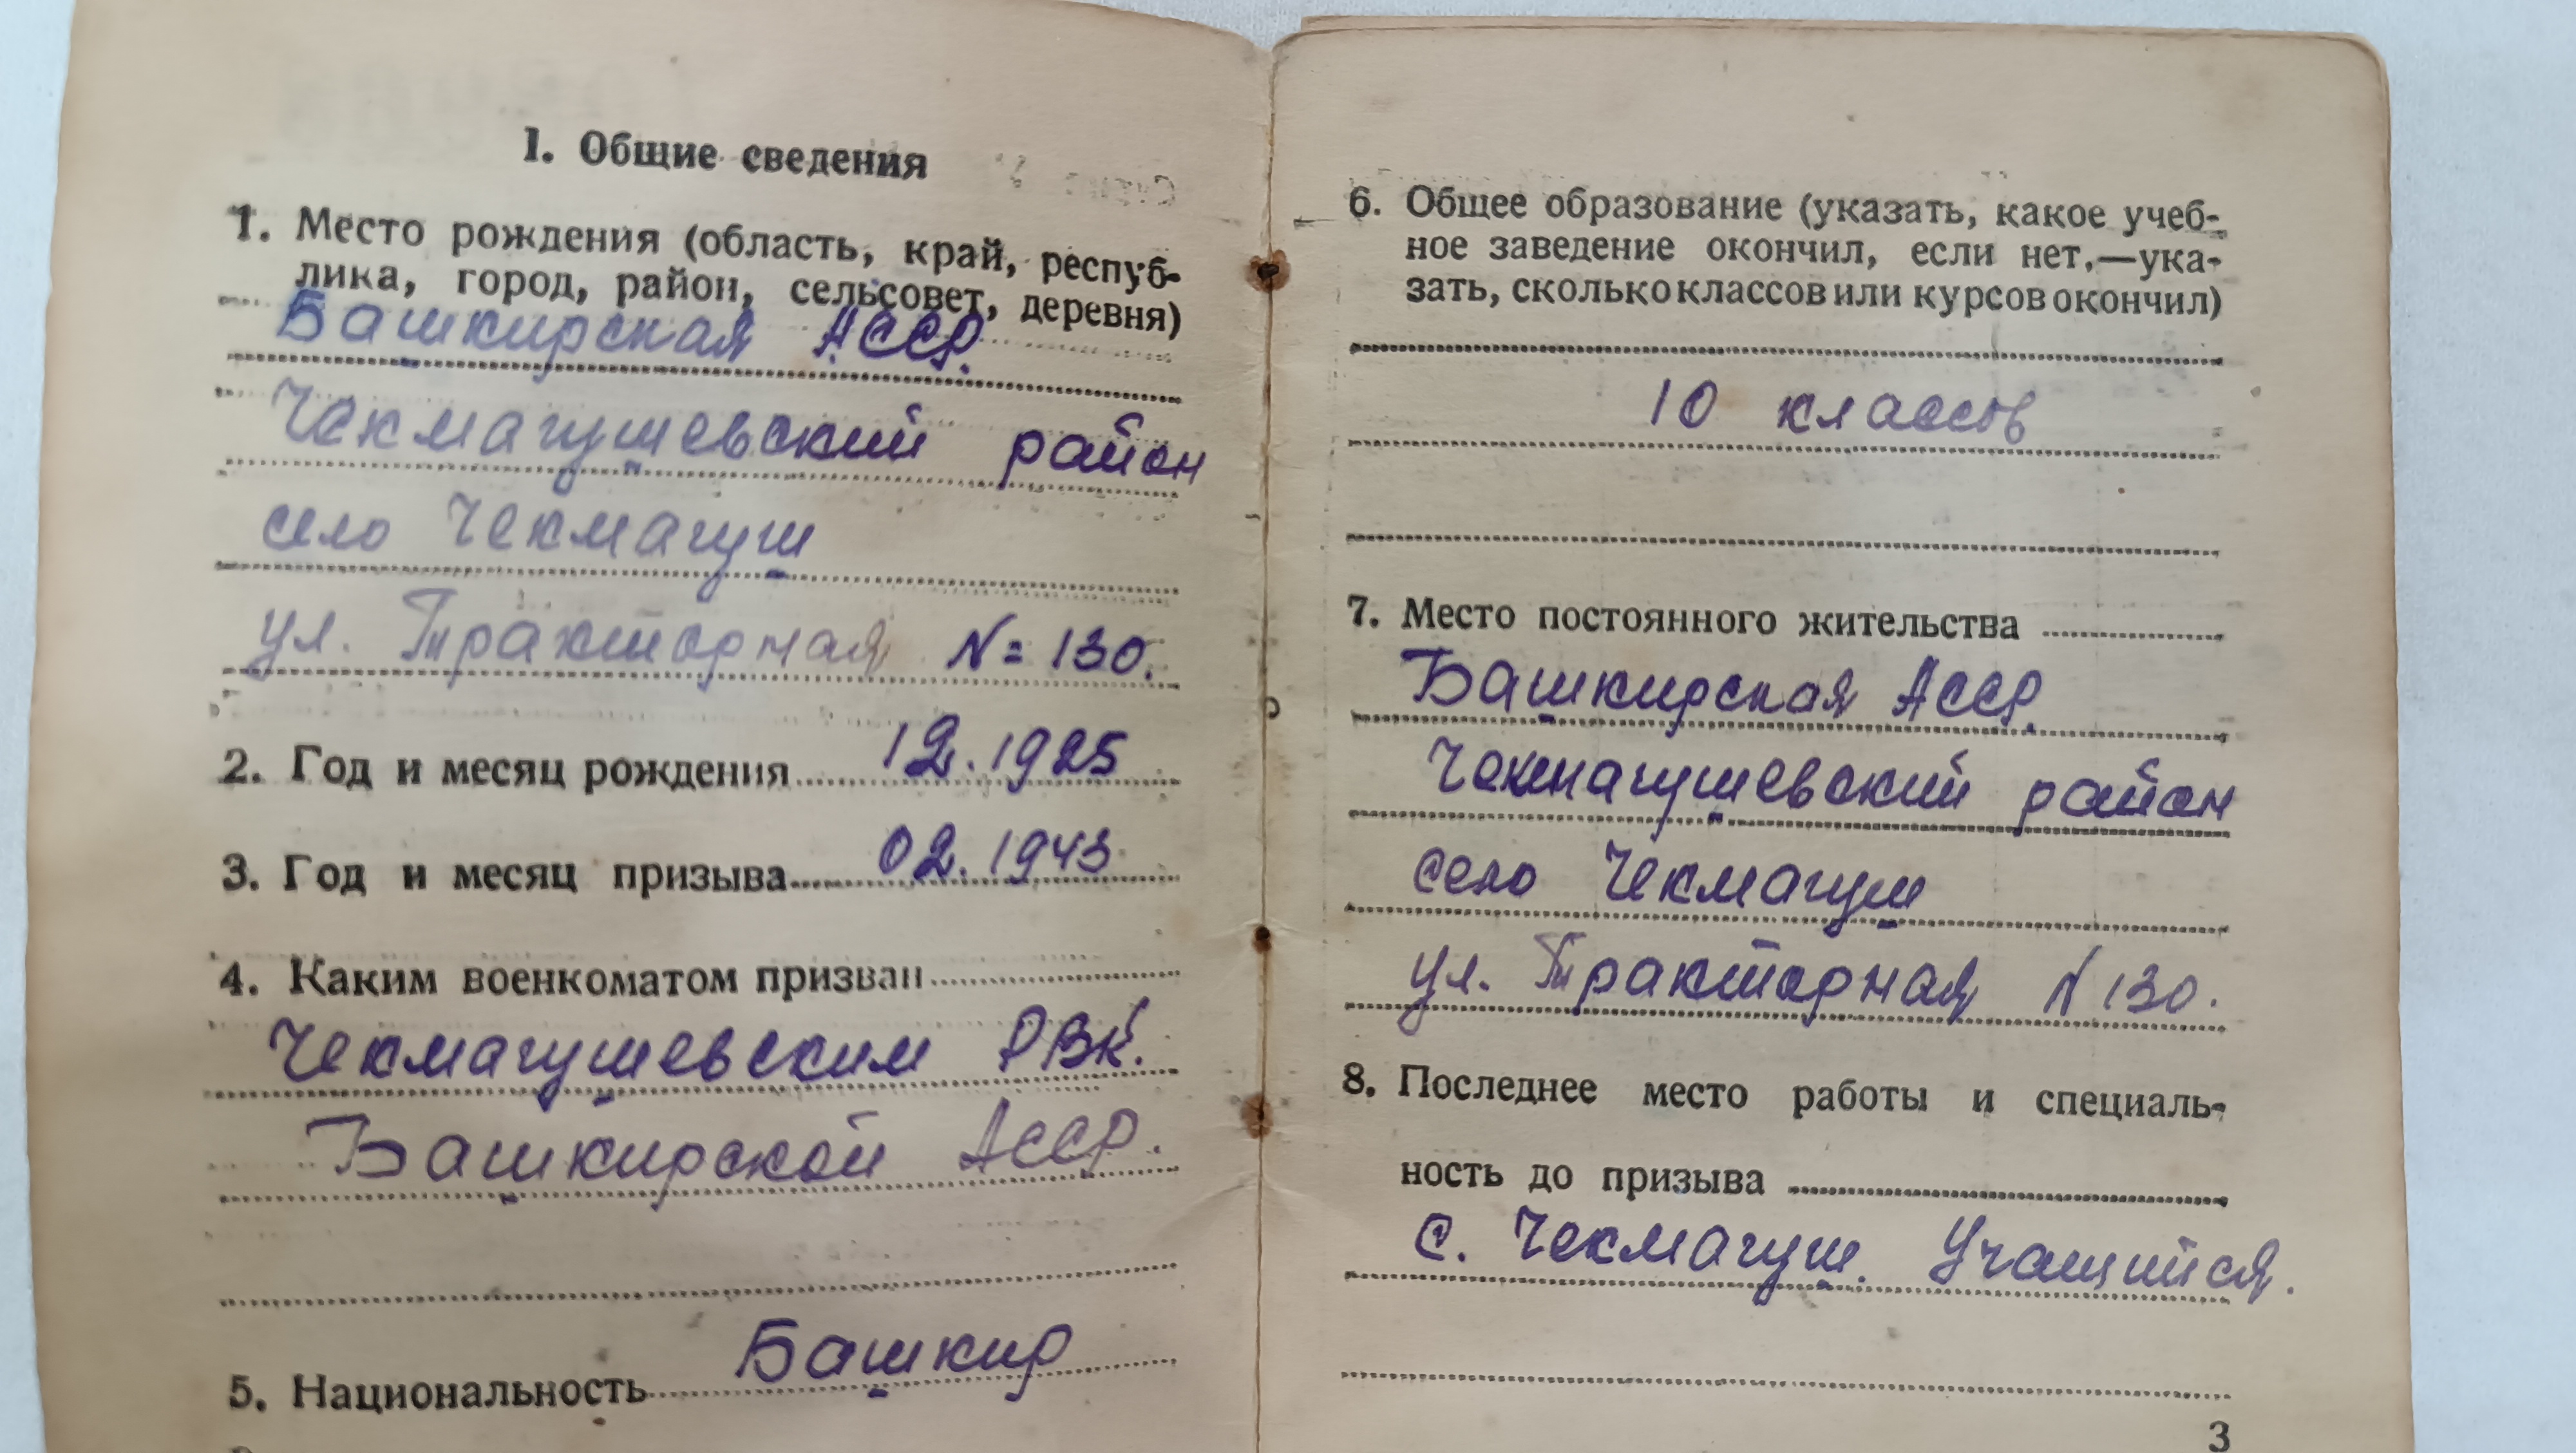 I. Общие сведения
1. Место рождения (область, край, респуб-
лика, город, район, сельсовет, деревня)
Башкирская АССР.
Чекмагушевский район
село Чекмагуш
ул. Тракторная N= 130.
2. Год и месяц рождения 12.1925
3. Год и месяц призыва 02.1943
4. Каким военкоматом призван
Чекмагушевским РВК.
Башкирской АССР.
5. Национальность Башкир
6. Общее образование (указать, какое учеб-
ное заведение окончил, если нет,—ука-
зать, сколько классов или курсов окончил)
10 классов
7. Место постоянного жительства
Башкирская АССР.
Чекмагушевский район
село Чекмагуш
ул. Тракторная N 130.
8. Последнее место работы и специаль-
ность до призыва
с. Чекмагуш. Учащийся.
3